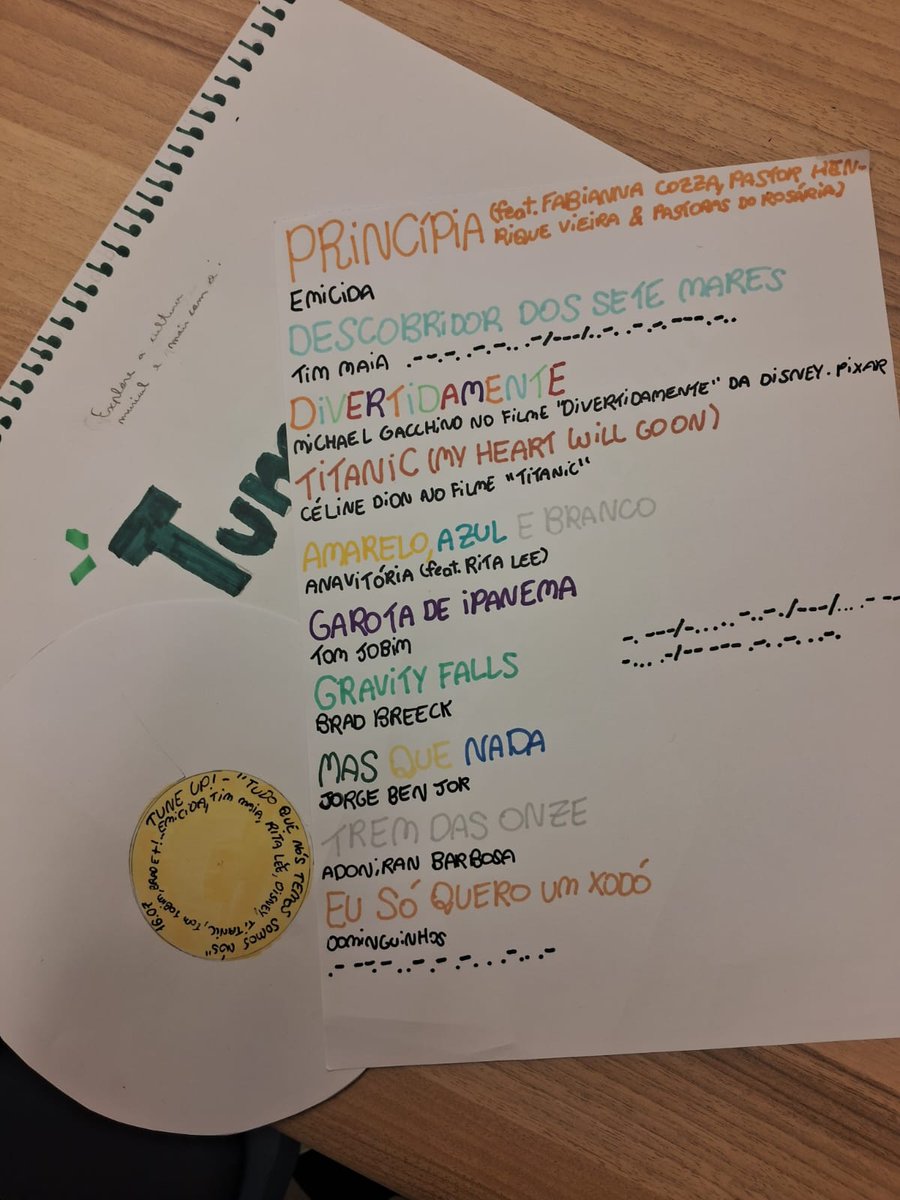 PRINCÍPIA (feat. FABIANNA COZZA, PASTOR HEN-
RIQUE VIEIRA & PASTORAS DO ROSÁRIA)
EMICIDA
DESCOBRIDOR DOS SETE MARES
TIM MAIA
DIVERTIDAMENTE
MICHAEL GACCHINO NO FILME "DIVERTIDAMENTE" DA DISNEY. PIXAR
TITANIC (MY HEART WILL GO ON)
CÉLINE DION NO FILME "TITANIC"
AMARELO, AZUL E BRANCO
ANAVITÓRIA (feat. RITA LEE)
GAROTA DE IPANEMA
TOM JOBIM
GRAVITY FALLS
BRAD BREECK
MAS QUE NADA
JORGE BEN JOR
TREM DAS ONZE
ADONIRAN BARBOSA
EU SÓ QUERO UM XODÓ
DOMINGUINHOS
Explore a cultura
musical e mais com o:
Tun
TUNE UP! - "TUDO QUE NÓS TEMOS SOMOS NÓS"
16.07
EMICIDA, TIM MAIA, RITA LEE, DISNEY, TITANIC, TOM JOBIM, BRAD E+!